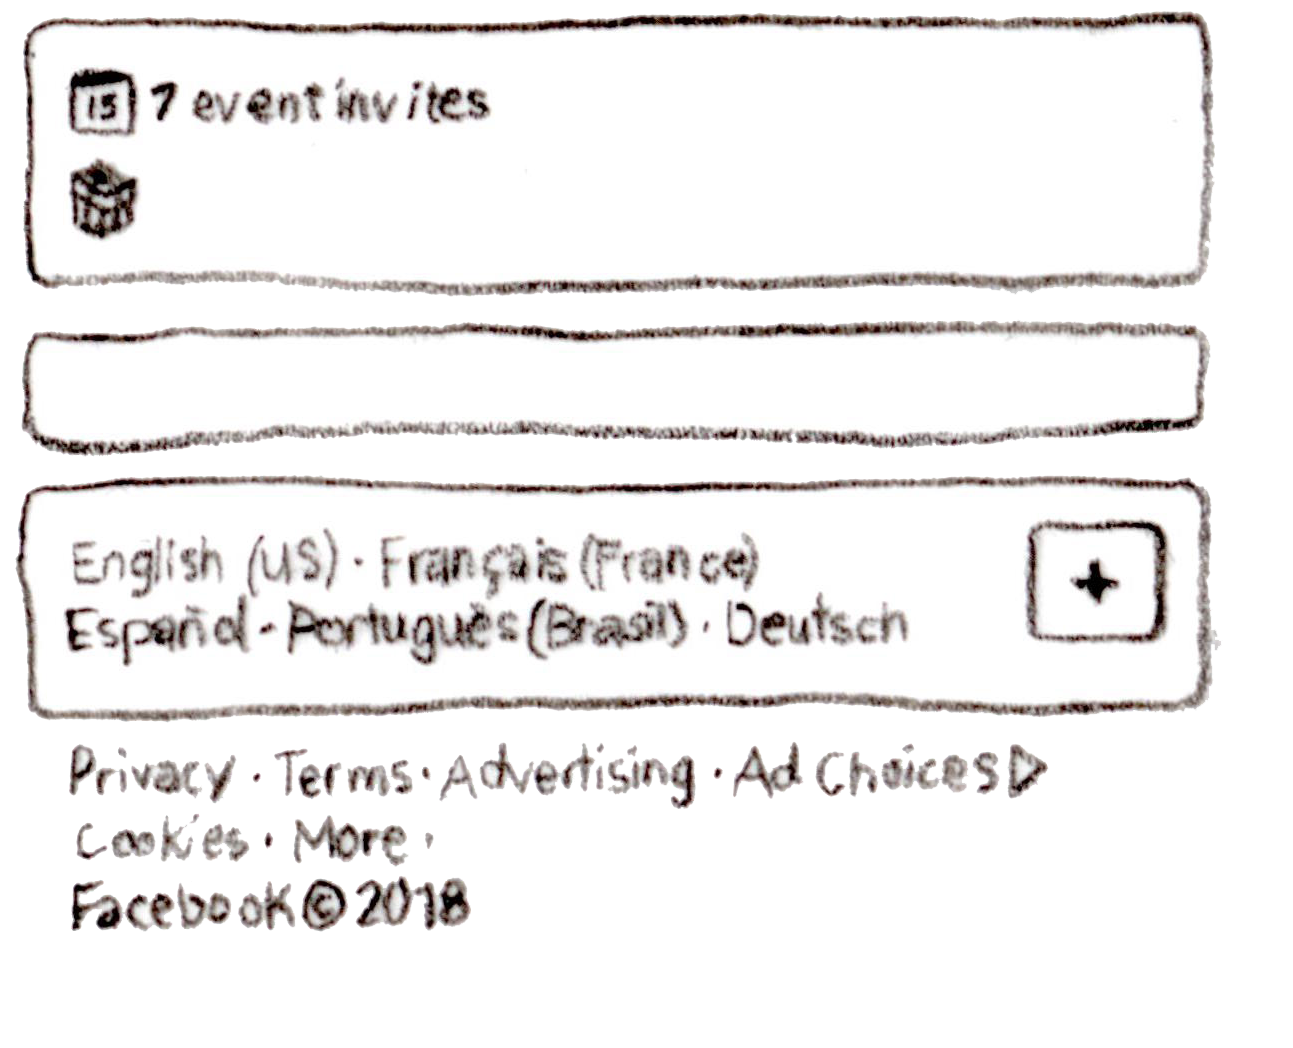 15 7 event invites
English (US) · Français (France)
Español · Português (Brasil) · Deutsch
Privacy · Terms · Advertising · Ad Choices
Cookies · More ·
Facebook © 2018